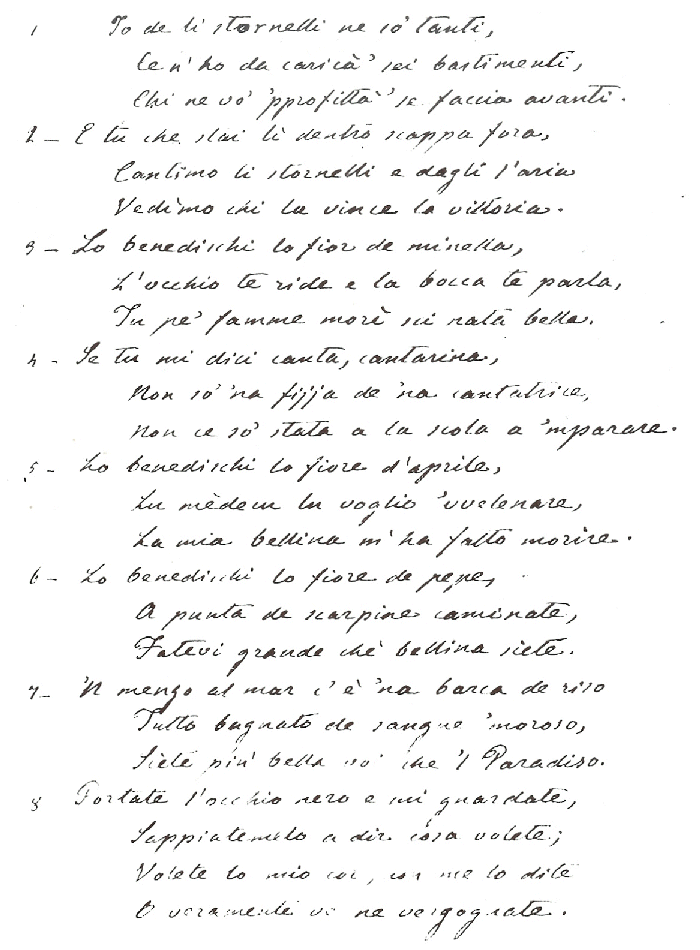 1 Io de li stornelli ne sò tanti,
Ce n'ho da caricà' sei bastimenti,
Chi ne vò 'pprofittà' se faccia avanti.
2 – E tu che stai lì dentro scappa fora,
Cantimo li stornelli e dagli l'aria
Vedèmo chi la vince la vittoria.
3 – Lo benedischi lo fior de minella,
L'occhio te ride e la bocca te parla,
Tu pe' famme morì sci nata bella.
4 – Se tu mi dici canta, cantarina,
Non sò 'na fijja de 'na cantatrice,
Non ce sò stata a la scola a 'mparare.
5 – Lo benedischi lo fiore d'aprile,
Lu mèdecu lu voglio 'vvelenare,
La mia bellina m'ha fatto morire.
6 – Lo benedischi lo fiore de pepe,
A punta de scarpine caminate,
Fatevi grande chè bellina siete.
7 – 'N mengo al mar c'è 'na barca de riso
Tutto bagnato de sangue 'moroso,
Siete più bella vo' che 'l Paradiso.
8 Portate l'occhio nero e mi guardate,
Sappiatemelo a dir cosa volete;
Volete lo mio cor, me lo dite
O veramente ve ne vergognate.